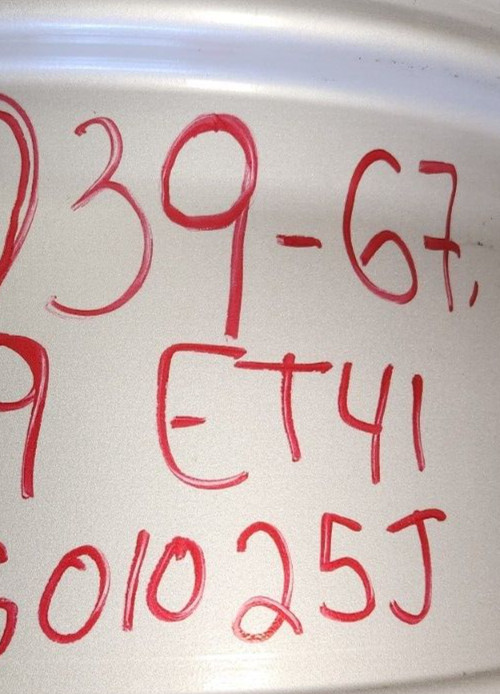 039-67,
9 ET41
601025J